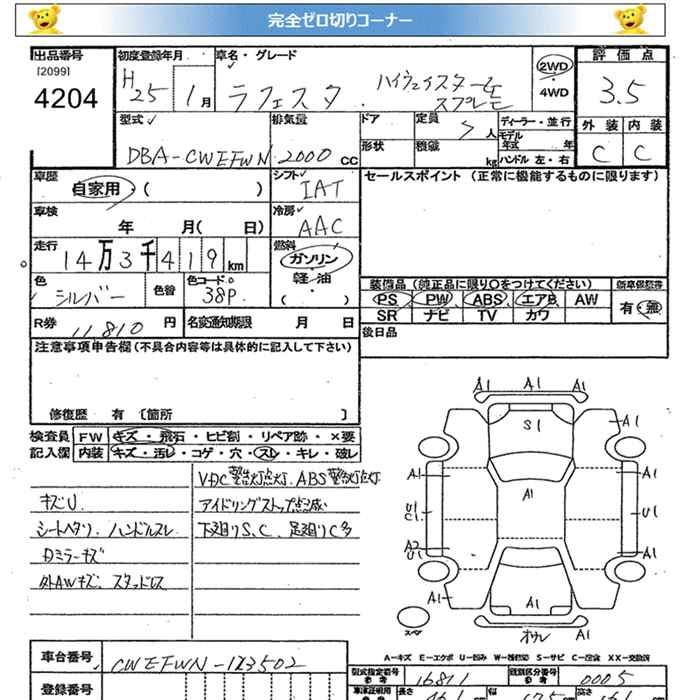 完全ゼロ切りコーナー
出品番号 初度登録年月 車名・グレード 2WD 評価点
[2099] H25 1月 ラフェスタ ハイウェイスターモスプレモ 4WD 3.5
4204
型式 排気量 ドア 定員 5人 ディーラー・並行 外装 内装
DBA-CWEFWN 2000cc 形状 積載 kg モデル年式 年 C C
ハンドル 左・右
車歴 シフト セールスポイント (正常に機能するものに限ります)
自家用・( ) IAT
車検 冷房
年 月( 日) AAC
走行 燃料
14万3千419km ガソリン・軽油
色 色替 色コードNo. ( ) 装備品 (純正品に限り○をつけてください) 新車保証書
シルバー 38P PS PW ABS エアB AW 有・無
R券 11810円 名変通知期限 月 日 SR ナビ TV カワ
注意事項申告欄(不具合内容等は具体的に記入して下さい) 後日品
修復歴 有 〔箇所 〕
検査員 FW キズ・飛石・ヒビ割・リペア跡・×要
記入欄 内装 キズ・汚レ・コゲ・穴・スレ・キレ・破レ
VDC警告灯点灯、ABS警告灯点灯
キズU アイドリングストップ点滅
シートヘタリ、ハンドルスレ 下廻りS、C、足廻りC多
Dミラーキズ
外AWキズ、スタッドレス
A1 A1 A1
S1 A1
A1 A1
A1
U1 C1 U1
A2 U1 A1
A1 A1
スペア オサレ
A1
A-キズ E-エクボ U-凹み W-補修跡 S-サビ C-腐食 XX-交換済
車台番号 CWEFWN-123502
型式指定番号 参考 16811 類別区分番号 参考 0005
登録番号 車検証明用 長さ 幅 高さ